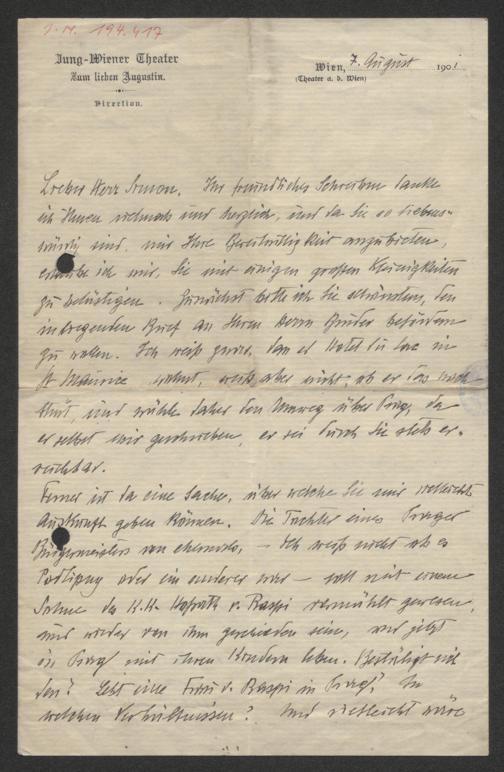 I.N. 194.417
Jung-Wiener Theater
Zum lieben Augustin.
Direction.
Wien, 7. August 1901
(Theater a. d. Wien)
Lieber Herr Simon. Ihr freundliches Schreiben danke
ich Ihnen vielmals und herzlich, und da Sie so liebens-
würdig sind, mir Ihre Bereitwilligkeit anzubieten,
erlaube ich mir, Sie mit einigen großen Kleinigkeiten
zu belästigen. Zunächst bitte ich Sie schönstens, den
inliegenden Brief an Ihren Herrn Bruder befördern
zu wollen. Ich weiß zwar, dass er Hotel du lac in
St Maurice wohnt, weiß aber nicht, ob er das noch
thut, und wähle daher den Umweg über Prag, da
er selbst mir geschrieben, er sei durch Sie stets er-
reichbar.
Ferner ist da eine Sache, über welche Sie mir vielleicht
Auskunft geben können. Die Tochter eines Prager
Bürgermeisters von ehemals, – Ich weiß nicht ob es
Potlipny oder ein anderer war – soll mit einem
Sohne des K.K. Hofrath v. Raspi vermählt gewesen,
und wieder von ihm geschieden sein, und jetzt
in Prag mit ihren Kindern leben. Bestätigt sich
das? Lebt eine Frau v. Raspi in Prag? In
welchen Verhältnissen? Und vielleicht wäre